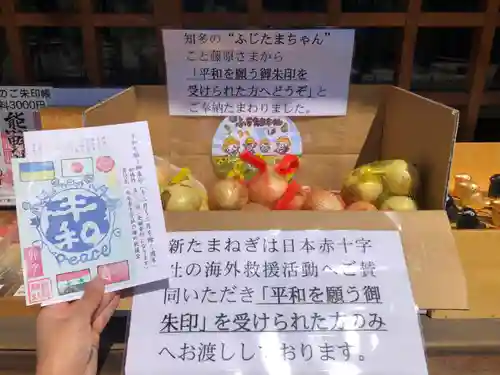 知多の“ふじたまちゃん”
こと藤原さまから
「平和を願う御朱印を
受けられた方へどうぞ」と
ご奉納たまわりました。
のご朱印帳
料3000円
平和
PEACE
新たまねぎは日本赤十字
社の海外救援活動へご賛
同いただき「平和を願う御
朱印」を受けられた方のみ
へお渡ししております。